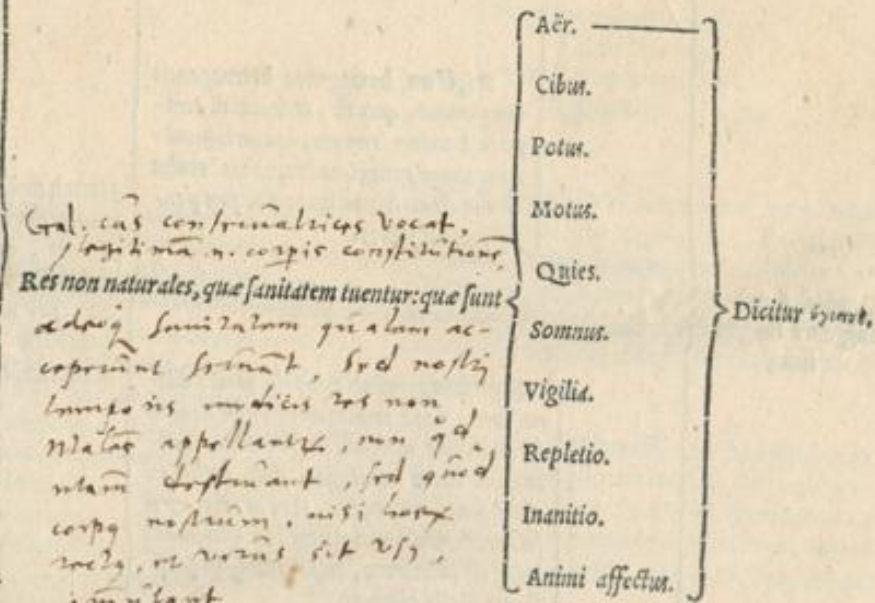 Gal. eas conseruatrices vocat,
legitimã n. corpis constitutionẽ,
Res non naturales, quæ sanitatem tuentur: quæ sunt
adeoq sanitatem qualem ac-
ceperũt seruãt, sed nostri
temporis medicis res non
appellantur, non qd
destruant, sed quod
corpus nostrum, nisi
et verus sit
immutant
Aër.
Cibus.
Potus.
Motus.
Quies.
Somnus.
Vigilia.
Repletio.
Inanitio.
Animi affectus.
Dicitur